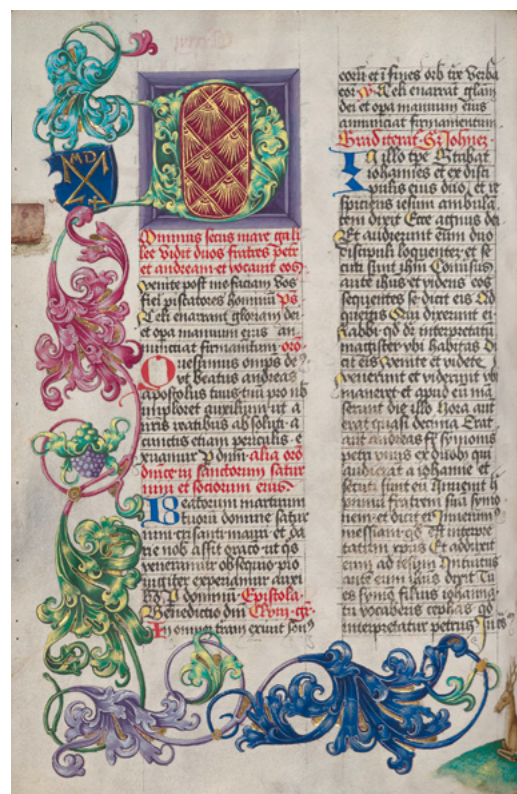 MD
D
ominus secus mare gali
lee vidit duos fratres petr
et andream et vocauit eos
venite post me faciam vos
fieri piscatores hominum ps
Celi enarrant gloriam dei
et opa manuum eius an
nunciat firmamentum oro
Quesumus omps de
vt beatus andreas
apostolus tuus tuū pro nb
imploret auxilium ut a
nris reatibus absoluti a
cunctis etiam periculis e
xuamur P dnm alia oro
sanctorum satur
nini et sociorum eius
Beatorum martirum
tuorum domine satur
nini
rie nob assit oracō ut qd
veneramur obsequio pio
iugiter experiamur auxi
P dominū Epistola
Benedictio dm
In omnem tram exiuit son
coru et ī fines orb tre verba
eor V Celi enarrat gliam
dei et opa manuum eius
annunciat firmamentum
S Johnez
In illo tpe Stabat
iohannes et ex disci
pulis eius duo et re
spiciens iesum ambulā
tem dixit Ecce agnus dei
Et audierunt eum duo
discipuli loquentez et se
cuti sunt ihm Conuersus
aute ihūs et videns eos
sequentes se dicit eis Qd
queritis Qui dixerunt ei
Rabbi qd dr interpretatū
magister vbi habitas Di
cit eis venite et videte
venerunt et viderunt vbi
maneret et apud eu mā
serunt die illo Hora aut
erat quasi decima Erat
aut andreas fr symonis
petri vnus ex duobz qui
audierat a iohanne et
secuti sunt eu Inuenit h
primū fratrem suū symo
nem et dicit ei Inuenim
messiam qd est interpre
tatum xpus Et adduxit
eum ad iesum Intuitus
aute eum ihūs dixit Tu
es symō filius iohanna
tu vocaberis cephas qd
interpretatur petrus